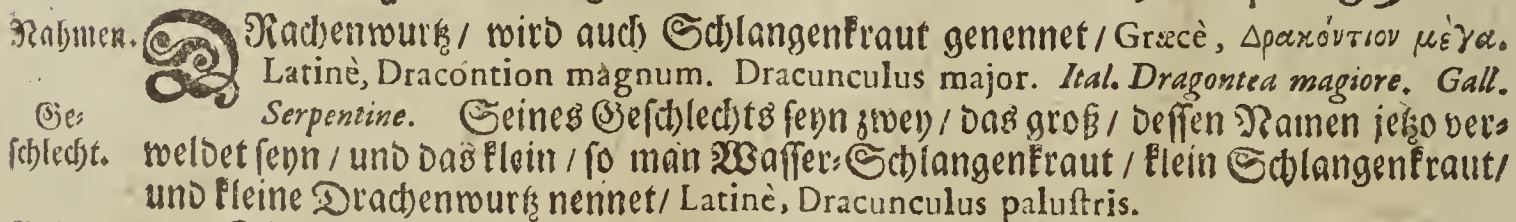 Nahmen. DRachenwurtz / wird auch Schlangenkraut genennet / Græcè, Δρακόντιον μὲγα.
Latinè, Dracóntion màgnum. Dracunculus major. Ital. Dragontea magiore. Gall.
Ge⸗ Serpentine. Seines Geſchlechts ſeyn zwey / das groß / deſſen Namen jetzo ver⸗
ſchlecht. meldet ſeyn / und das klein / ſo man Waſſer⸗Schlangenkraut / klein Schlangenkraut /
und kleine Drachenwurtz nennet / Latinè, Dracunculus paluſtris.